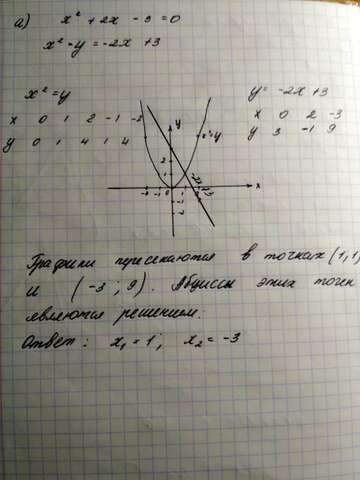 а) x² + 2x - 3 = 0
x² - y = -2x + 3
x² = y
x 0 1 2 -1 -2
y 0 1 4 1 4
y = -2x + 3
x 0 2 -3
y 3 -1 9
y
x² = y
-2x+3
x
0
Графики пересекаются в точках (1,1)
и (-3; 9). Абциссы этих точек
являются решением.
Ответ: x₁ = 1; x₂ = -3